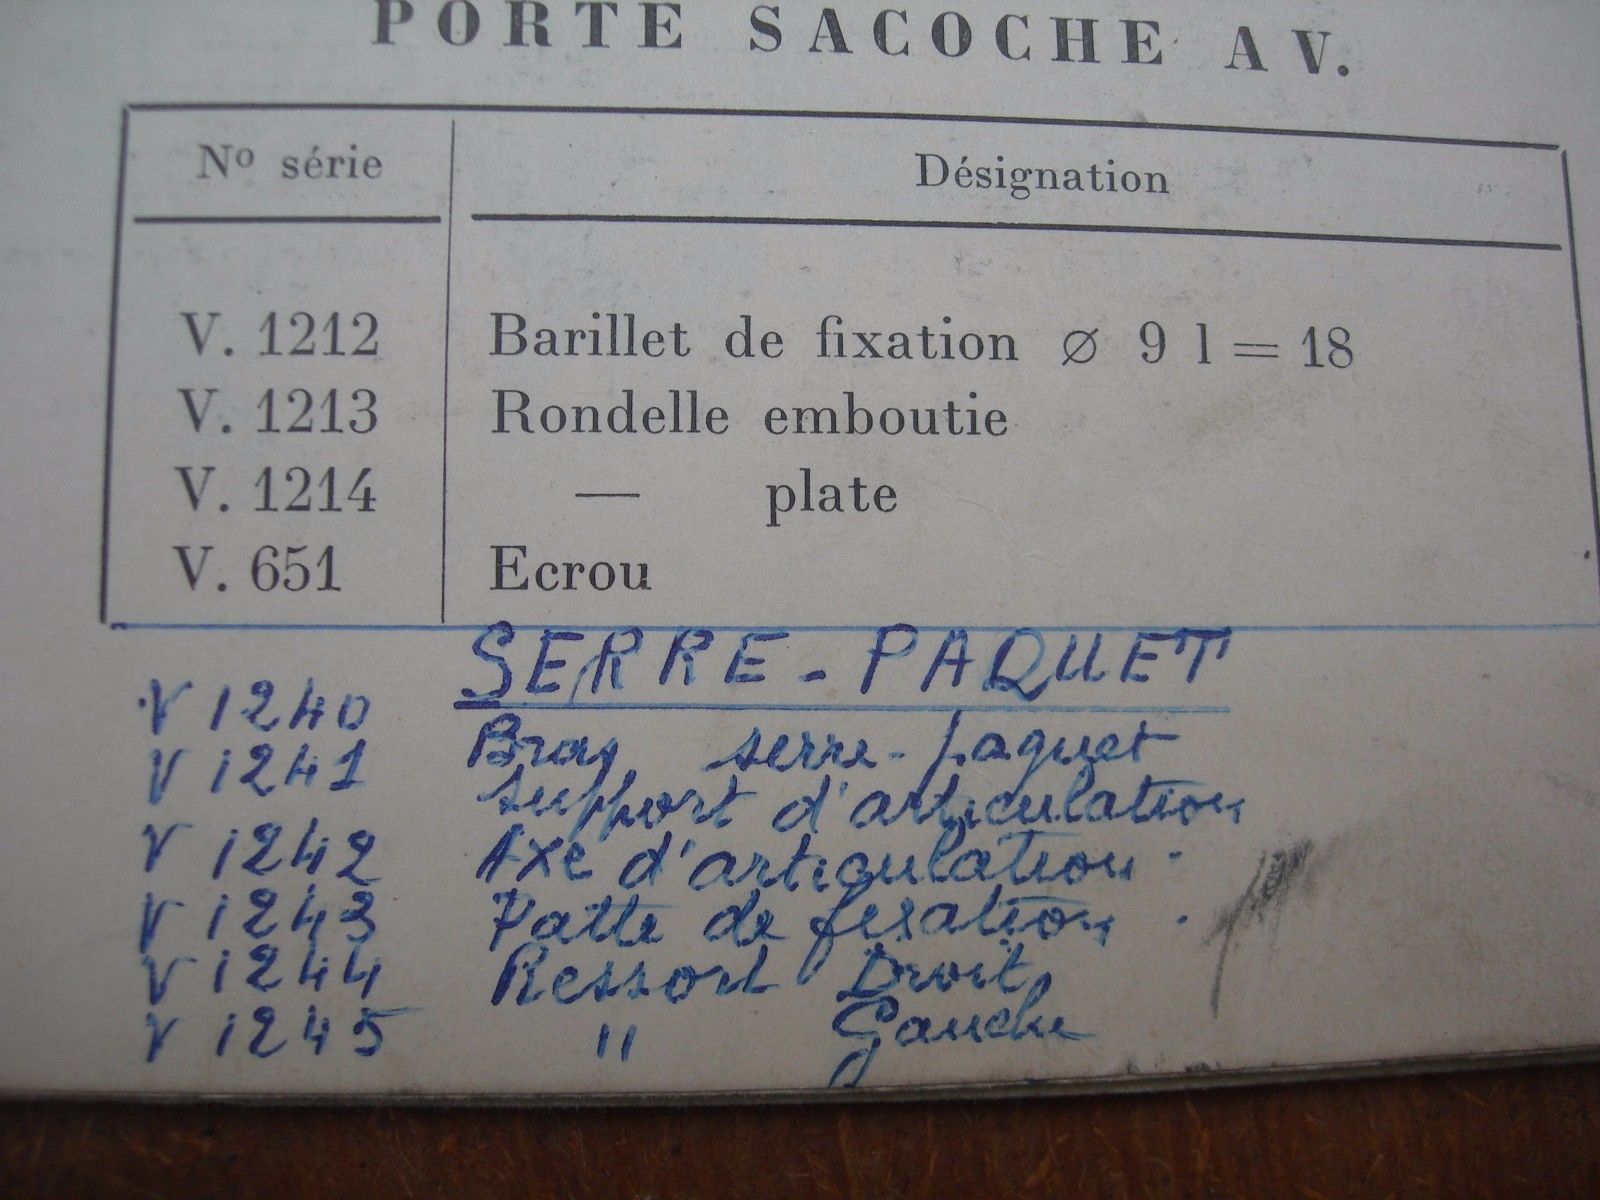 PORTE SACOCHE AV.
Nº série Désignation
V. 1212 Barillet de fixation ∅ 9 l = 18
V. 1213 Rondelle emboutie
V. 1214 — plate
V. 651 Ecrou
SERRE-PAQUET
V 1240 Bras serre-paquet
V 1241 Support d'articulation
V 1242 Axe d'articulation.
V 1243 Patte de fixation.
V 1244 Ressort Droit
V 1245 " Gauche